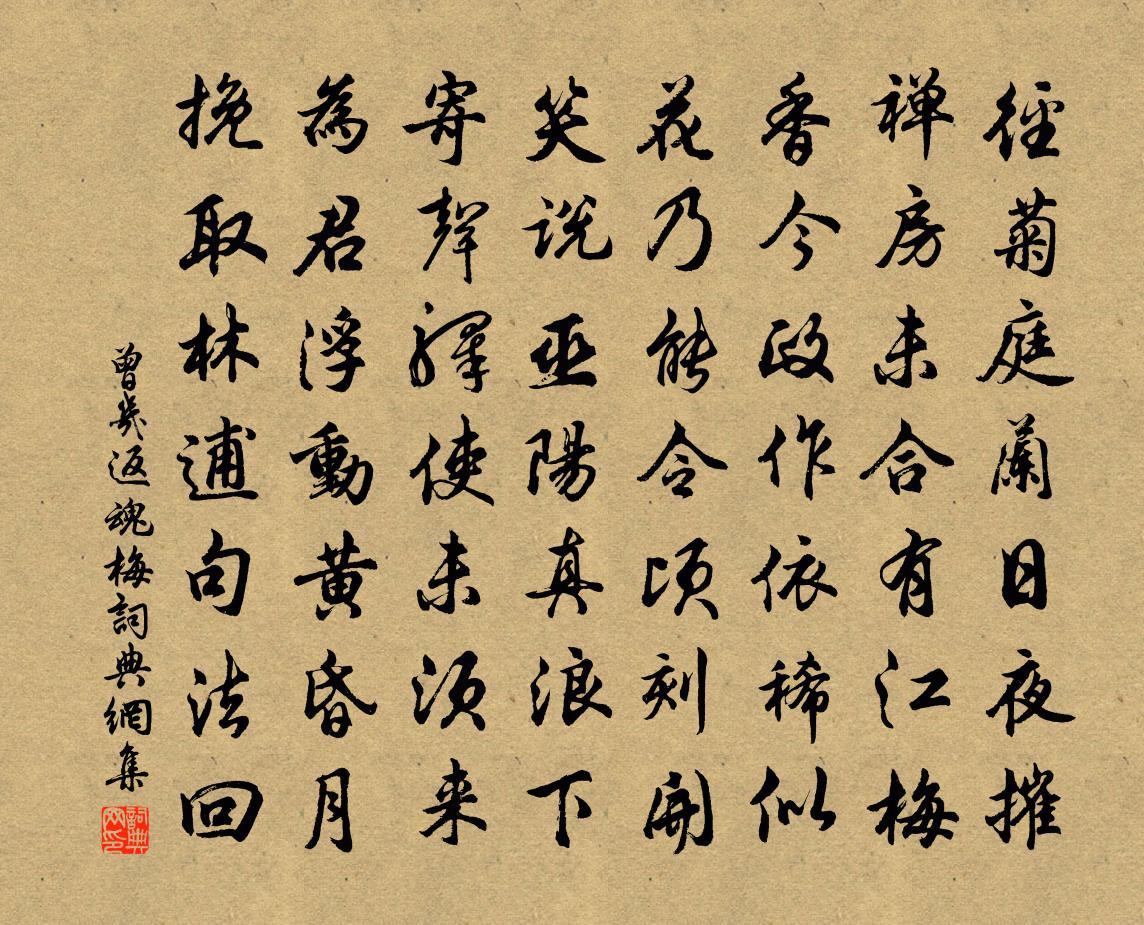 徑菊庭蘭日夜摧
禅房未合有江梅
香今政作依稀似
花乃能令頃刻開
笑说巫陽真浪下
寄聲驛使未須来
為君浮動黄昏月
挽取林逋句法回
曾幾返魂梅詞典網集
詞典网印